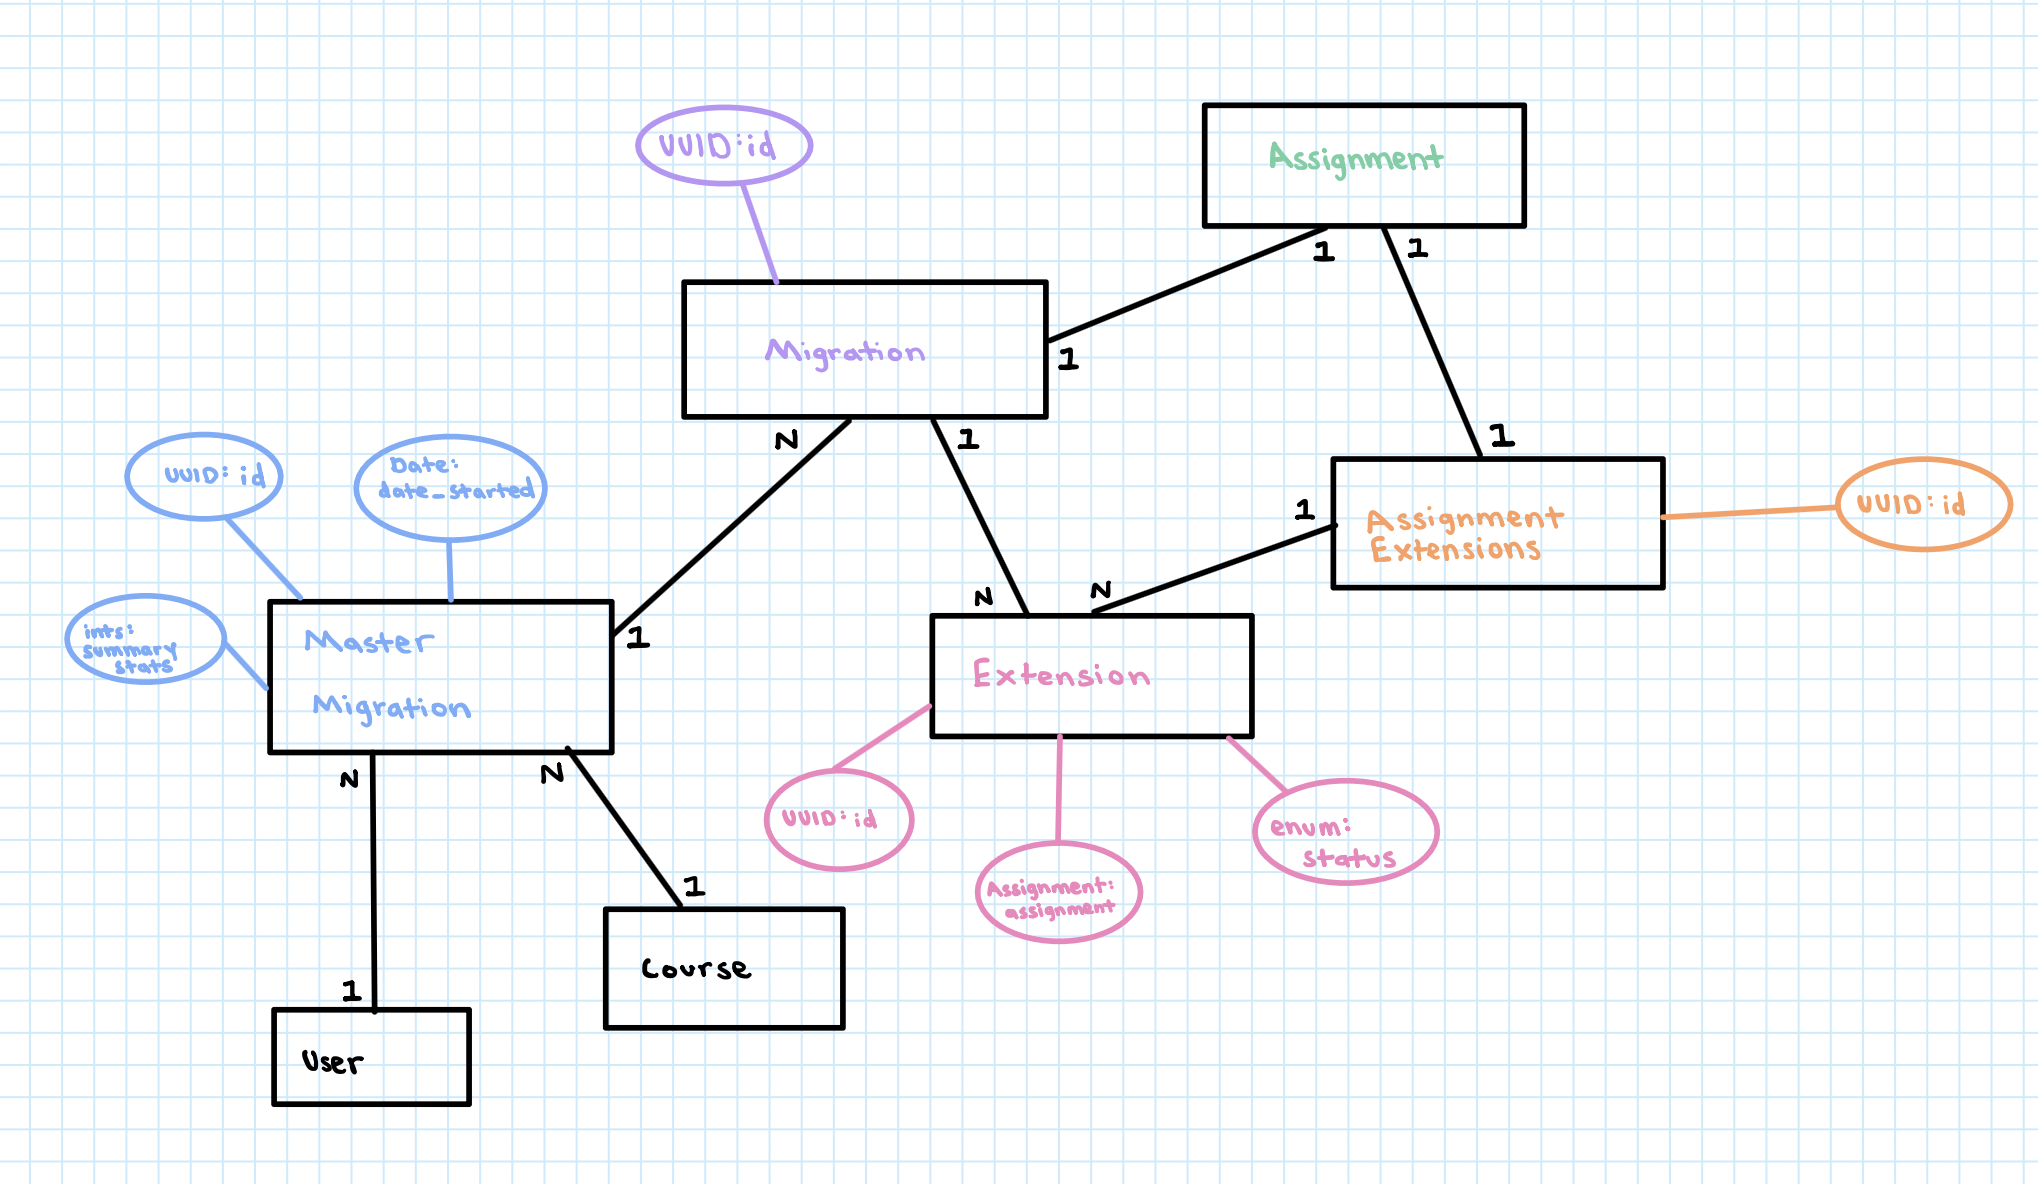 UUID:id
Assignment
1
1
Migration
1
N
1
1
UUID: id
Date:
date_started
1
Assignment
Extensions
UUID: id
N
N
ints:
summary
stats
Master
Migration
1
Extension
N
N
UUID: id
enum:
status
1
Assignment:
assignment
Course
1
User